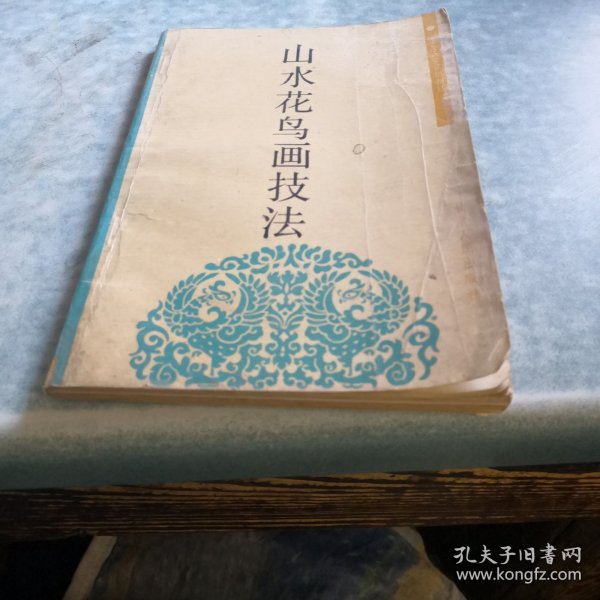 山水花鸟画技法
孔夫子旧书网
www.kongfz.com